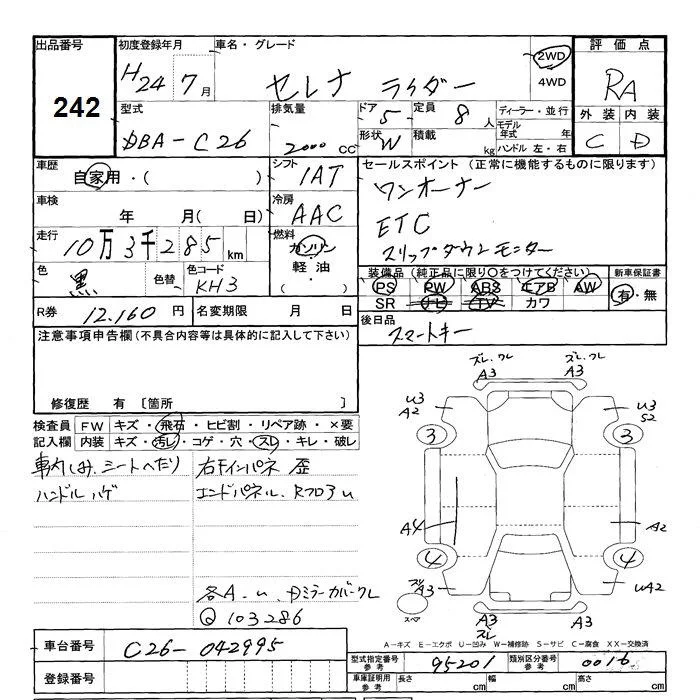 出品番号
242
初度登録年月
H24 7月
車名・グレード
セレナ ライダー
2WD
4WD
評価点
RA
外装 内装
C D
型式
DBA-C26
排気量
2000cc
ドア 5
定員 8人
形状 W
積載 kg
ディーラー・並行
モデル年式 年
ハンドル 左・右
車歴
自家用・( )
シフト
IAT
セールスポイント(正常に機能するものに限ります)
ワンオーナー
ETC
スリップダウンモニター
車検
年 月( 日)
冷房
AAC
走行
10万3千285km
燃料
ガソリン
軽油・
( )
色
黒
色替
色コード
KH3
装備品(純正品に限り○をつけてください)
PS PW ABS エアB AW
SR ナビ TV カワ
新車保証書
有・無
R券 12.160円
名変期限 月 日
後日品
スマートキー
注意事項申告欄(不具合内容等は具体的に記入して下さい)
修復歴 有 〔箇所
検査員記入欄
FW キズ・飛石・ヒビ割・リペア跡・×要
内装 キズ・汚レ・コゲ・穴・スレ・キレ・破レ
車内しみ、シートへたり
ハンドルハゲ
歪
エンドパネル、Rフロアu
各A-u、Dミラーカバークレ
Q 103286
ズレ、クレ
A3
ズレ、クレ
A3
U3
A2
U3
S2
3
3
A4
A2
4
4
A3
UA2
スペア
A3
スレ
A3
A-キズ E-エクボ U-凹み W-補修跡 S-サビ C-腐食 XX-交換済
車台番号
C26-042995
登録番号
型式指定番号
参考
95201
類別区分番号
参考
0016
車庫証明用
参考
長さ cm
幅 cm
高さ cm